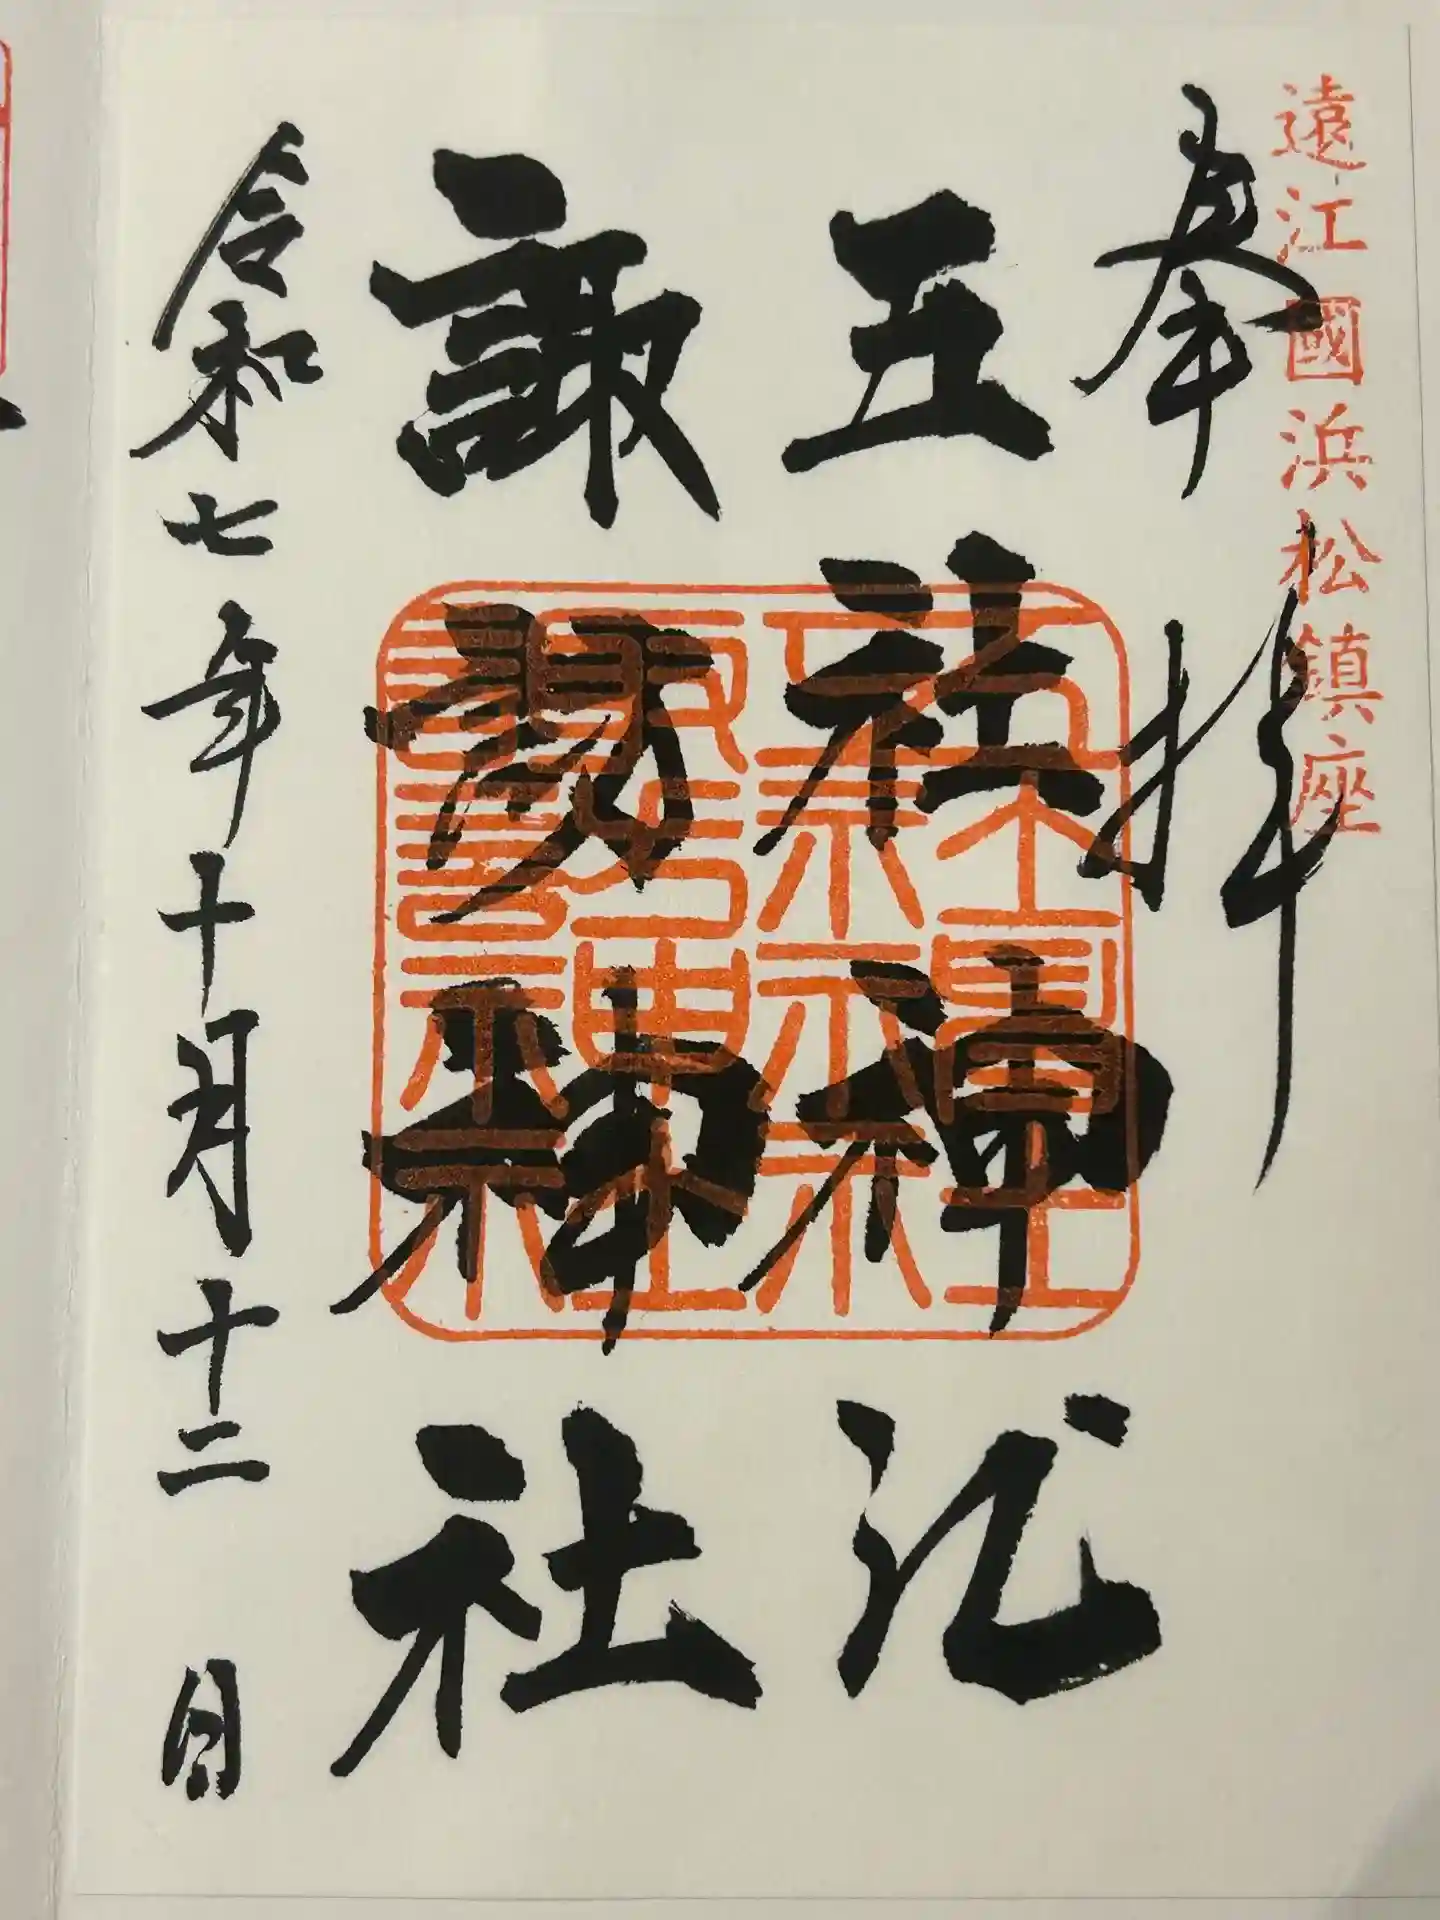 遠江國浜松鎮座
奉拝
五社神社
諏訪神社
五社神社
諏訪神社
令和七年十月十二日